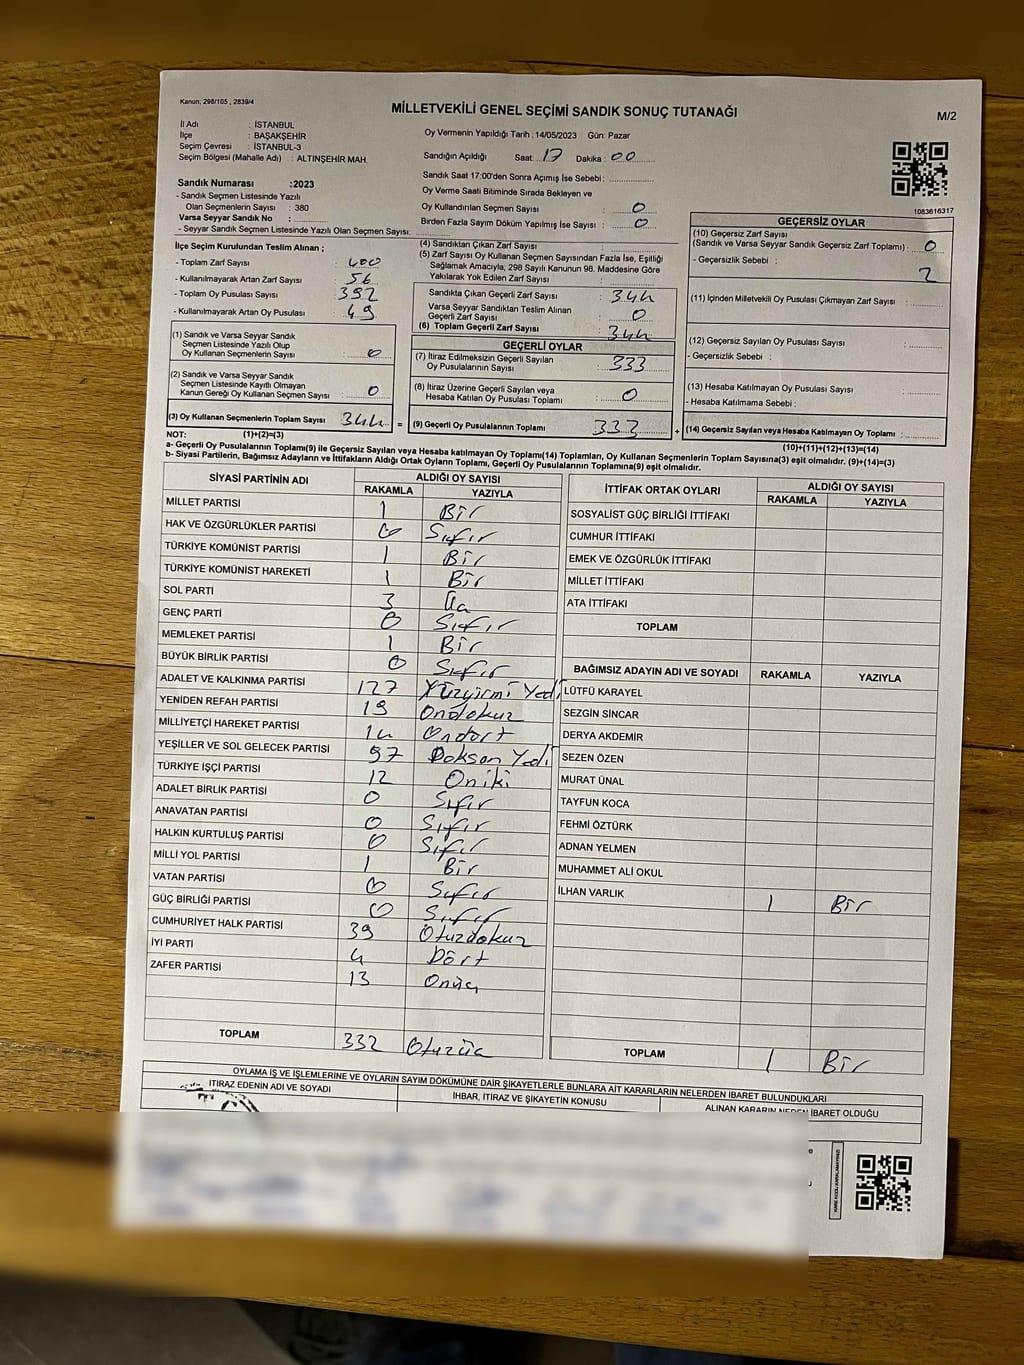 Kanun: 298/105 , 2839/4
MİLLETVEKİLİ GENEL SEÇİMİ SANDIK SONUÇ TUTANAĞI
M/2
İl Adı : İSTANBUL
İlçe : BAŞAKŞEHİR
Seçim Çevresi : İSTANBUL-3
Seçim Bölgesi (Mahalle Adı) : ALTINŞEHİR MAH.
Oy Vermenin Yapıldığı Tarih : 14/05/2023 Gün: Pazar
Sandığın Açıldığı Saat: 17 Dakika : 00
Sandık Saat 17:00'den Sonra Açımış İse Sebebi:
Sandık Numarası :2023
- Sandık Seçmen Listesinde Yazılı
Olan Seçmenlerin Sayısı : 380
Varsa Seyyar Sandık No :
- Seyyar Sandık Seçmen Listesinde Yazılı Olan Seçmen Sayısı:
Oy Verme Saati Bitiminde Sırada Bekleyen ve
Oy Kullandırılan Seçmen Sayısı : 0
Birden Fazla Sayım Döküm Yapılmış İse Sayısı : 0
1083616317
İlçe Seçim Kurulundan Teslim Alınan ;
- Toplam Zarf Sayısı : 400
- Kullanılmayarak Artan Zarf Sayısı : 56
- Toplam Oy Pusulası Sayısı : 392
- Kullanılmayarak Artan Oy Pusulası : 49
(1) Sandık ve Varsa Seyyar Sandık
Seçmen Listesinde Yazılı Olup
Oy Kullanan Seçmenlerin Sayısı : 0
(2) Sandık ve Varsa Seyyar Sandık
Seçmen Listesinde Kayıtlı Olmayan
Kanun Gereği Oy Kullanan Seçmen Sayısı : 0
(3) Oy Kullanan Seçmenlerin Toplam Sayısı 344 =
(4) Sandıktan Çıkan Zarf Sayısı :
(5) Zarf Sayısı Oy Kullanan Seçmen Sayısından Fazla İse, Eşitliği
Sağlamak Amacıyla, 298 Sayılı Kanunun 98. Maddesine Göre
Yakılarak Yok Edilen Zarf Sayısı :
Sandıkta Çıkan Geçerli Zarf Sayısı : 344
Varsa Seyyar Sandıktan Teslim Alınan
Geçerli Zarf Sayısı : 0
(6) Toplam Geçerli Zarf Sayısı : 344
GEÇERLİ OYLAR
(7) İtiraz Edilmeksizin Geçerli Sayılan
Oy Pusulalarının Sayısı : 333
(8) İtiraz Üzerine Geçerli Sayılan veya
Hesaba Katılan Oy Pusulaları Toplamı : 0
(9) Geçerli Oy Pusulalarının Toplamı : 333 +
GEÇERSİZ OYLAR
(10) Geçersiz Zarf Sayısı
(Sandık ve Varsa Seyyar Sandık Geçersiz Zarf Toplamı) : 0
- Geçersizlik Sebebi : 2
(11) İçinden Milletvekili Oy Pusulası Çıkmayan Zarf Sayısı :
(12) Geçersiz Sayılan Oy Pusulası Sayısı :
- Geçersizlik Sebebi :
(13) Hesaba Katılmayan Oy Pusulası Sayısı :
- Hesaba Katılmama Sebebi :
(14) Geçersiz Sayılan veya Hesaba Katılmayan Oy Toplamı :
NOT: (1)+(2)=(3)
(10)+(11)+(12)+(13)=(14)
a- Geçerli Oy Pusulalarının Toplamı(9) ile Geçersiz Sayılan veya Hesaba katılmayan Oy Toplamı(14) Toplamları, Oy Kullanan Seçmenlerin Toplam Sayısına(3) eşit olmalıdır. (9)+(14)=(3)
b- Siyasi Partilerin, Bağımsız Adayların ve İttifakların Aldığı Ortak Oyların Toplamı, Geçerli Oy Pusulalarının Toplamına(9) eşit olmalıdır.
SİYASİ PARTİNİN ADI ALDIĞI OY SAYISI
RAKAMLA YAZIYLA
MİLLET PARTİSİ 1 Bir
HAK VE ÖZGÜRLÜKLER PARTİSİ 0 Sıfır
TÜRKİYE KOMÜNİST PARTİSİ 1 Bir
TÜRKİYE KOMÜNİST HAREKETİ 1 Bir
SOL PARTİ 3 Üç
GENÇ PARTİ 0 Sıfır
MEMLEKET PARTİSİ 1 Bir
BÜYÜK BİRLİK PARTİSİ 0 Sıfır
ADALET VE KALKINMA PARTİSİ 127 Yüzyirmi Yedi
YENİDEN REFAH PARTİSİ 19 Ondokuz
MİLLİYETÇİ HAREKET PARTİSİ 14 Ondört
YEŞİLLER VE SOL GELECEK PARTİSİ 97 Doksan Yedi
TÜRKİYE İŞÇİ PARTİSİ 12 Oniki
ADALET BİRLİK PARTİSİ 0 Sıfır
ANAVATAN PARTİSİ 0 Sıfır
HALKIN KURTULUŞ PARTİSİ 0 Sıfır
MİLLİ YOL PARTİSİ 1 Bir
VATAN PARTİSİ 0 Sıfır
GÜÇ BİRLİĞİ PARTİSİ 0 Sıfır
CUMHURİYET HALK PARTİSİ 39 Otuzdokuz
İYİ PARTİ 4 Dört
ZAFER PARTİSİ 13 Onüç
TOPLAM 332
İTTİFAK ORTAK OYLARI ALDIĞI OY SAYISI
RAKAMLA YAZIYLA
SOSYALİST GÜÇ BİRLİĞİ İTTİFAKI
CUMHUR İTTİFAKI
EMEK VE ÖZGÜRLÜK İTTİFAKI
MİLLET İTTİFAKI
ATA İTTİFAKI
TOPLAM
BAĞIMSIZ ADAYIN ADI VE SOYADI RAKAMLA YAZIYLA
LÜTFÜ KARAYEL
SEZGİN SİNCAR
DERYA AKDEMİR
SEZEN ÖZEN
MURAT ÜNAL
TAYFUN KOCA
FEHMİ ÖZTÜRK
ADNAN YELMEN
MUHAMMET ALİ OKUL
İLHAN VARLIK 1 Bir
TOPLAM 1 Bir
OYLAMA İŞ VE İŞLEMLERİNE VE OYLARIN SAYIM DÖKÜMÜNE DAİR ŞİKAYETLERLE BUNLARA AİT KARARLARIN NELERDEN İBARET BULUNDUKLARI
İTİRAZ EDENİN ADI VE SOYADI
İHBAR, İTİRAZ VE ŞİKAYETİN KONUSU
ALINAN KARARIN NEDEN İBARET OLDUĞU